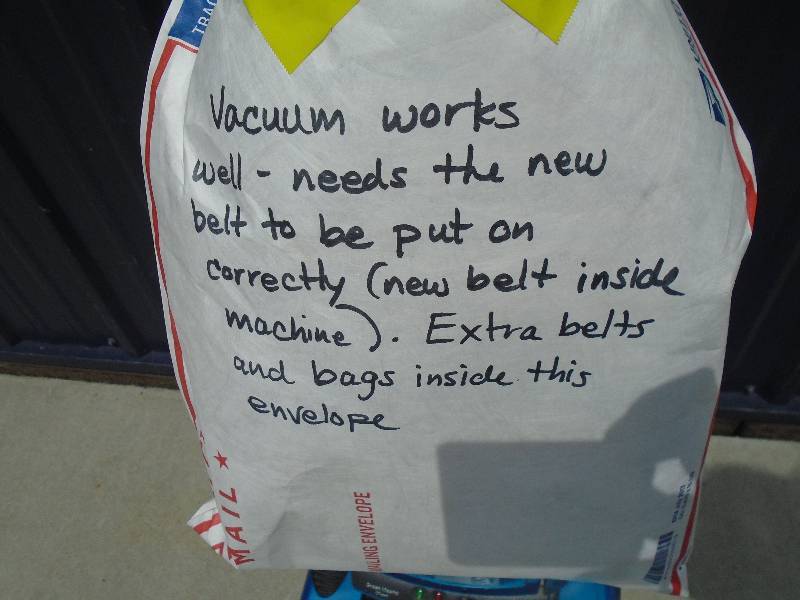 TRAC
Vacuum works
well - needs the new
belt to be put on
correctly (new belt inside
machine). Extra belts
and bags inside this
envelope
MAIL
MAILING ENVELOPE